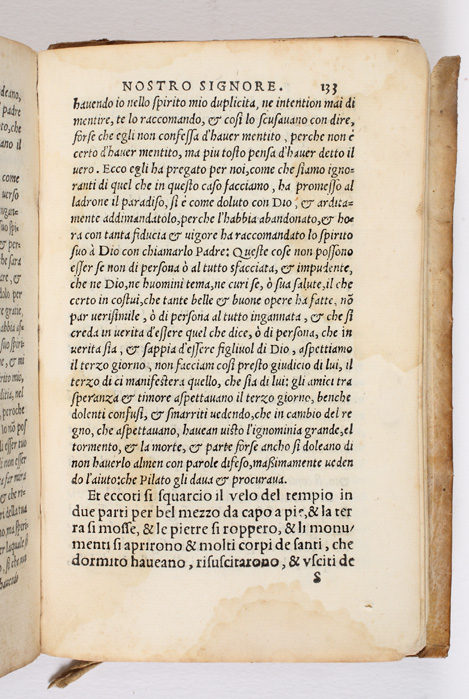 NOSTRO SIGNORE. 133
havendo io nello spirito mio duplicita, ne intention mai di
mentire, te lo raccomando, & così lo scusavano con dire,
forse che egli non confessa d'haver mentito, perche non è
certo d'haver mentito, ma piu tosto pensa d'haver detto il
vero. Ecco egli ha pregato per noi, come che siamo igno-
ranti di quel che in questo caso facciamo, ha promesso al
ladrone il paradiso, si è come doluto con Dio, & ardita-
mente addimandatolo, perche l'habbia abandonato, & ho-
ra con tanta fiducia & vigore ha raccomandato lo spirito
suo à Dio con chiamarlo Padre: Queste cose non possono
esser se non di persona ò al tutto sfacciata, & impudente,
che ne Dio, ne huomini tema, ne curi se, ò sua salute, il che
certo in costui, che tante belle & buone opere ha fatte, nõ
par verisimile, ò di persona al tutto ingannata, & che si
creda in verita d'essere quel che dice, ò di persona, che in
verita sia, & sappia d'essere figliuol di Dio, aspettiamo
il terzo giorno, non facciam così presto giudicio di lui, il
terzo di ci manifestera quello, che sia di lui: gli amici tra
speranza & timore aspettauano il terzo giorno, benche
dolenti confusi, & smarriti uedendo, che in cambio del re
gno, che aspettauano, haueano uisto l'ignominia grande, el
tormento, & la morte, & parte forse ancho si doleano di
non hauerlo almen con parole difeso, maßimamente ueden
do l'aiuto: che Pilato gli daua & procuraua.
Et eccoti si squarcio il velo del tempio in
due parti per bel mezzo da capo a pie, & la ter
ra si mosse, & le pietre si roppero, & li monu/
menti si aprirono & molti corpi de santi, che
dormito haueano, risuscitarono, & vsciti de
S